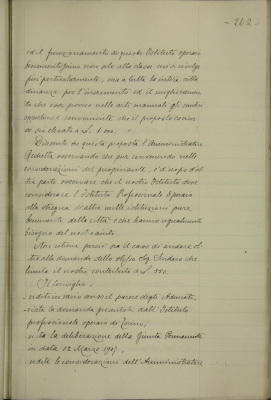 - 262 -
ed il funzionamento di questo Istituto operaio
benemerito, non solo alla classe cui si rivolge
più particolarmente, ma a tutta la intera citta
dinanza per l'incremento ed il miglioramen
to che esso procura nelle arti manuali gli
che il proposto contri
so sia elevato a L. 1.000. =
Discusso su questa proposta l'Amministratore
osservando che pur convenendo nelle
considerazioni del proponente, c'è d'opo d'al
tra parte osservare che il nostro Istituto deve
considerare l'Istituto Professionale Operaio
alla stregua di altre utili istituzioni pure
benemerite della città e che hanno egualmente
bisogno del nostro aiuto.
Non ritiene perciò sia il caso di andare ol
tre alla domanda dello stesso Sig. Sindaco che
limita il nostro contributo a L. 550.
Il Consiglio,
udito in vario senso il parere degli Adunati,
vista la domanda presentata dall'Istituto
professionale operaio di Torino,
vista la deliberazione della Giunta Permanente
in data 12 Marzo 1907,
udite le considerazioni dell'Amministratore